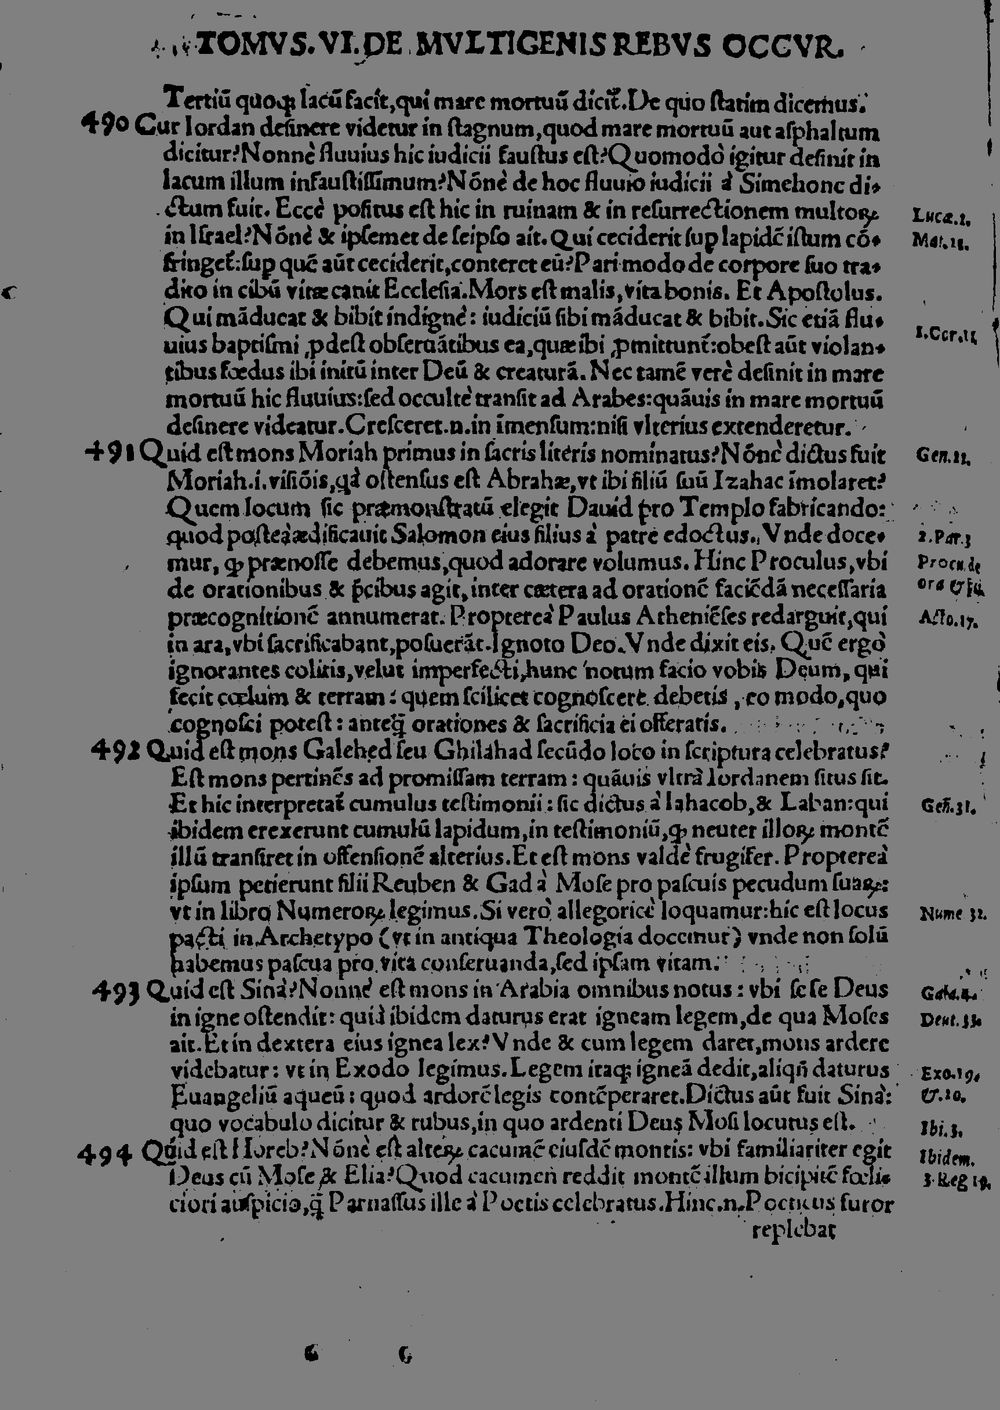 TOMVS. VI. DE MVLTIGENIS REBVS OCCVR.
Tertiū quoq; lacū facit, qui mare mortuū dicit̃. De quo statim dicemus.
490 Cur Iordan desinere videtur in stagnum, quod mare mortuū aut asphaltum
dicitur? Nonnè fluuius hic iudicii faustus est? Quomodò igitur desinit in
lacum illum infaustissimum? Nōnè de hoc fluuio iudicii à Simehone di-
ctum fuit. Eccè positus est hic in ruinam & in resurrectionem multoꝝ
Lucæ.2.
in Israel? Nōnè & ipsemet de seipso ait. Qui ceciderit sup lapidē istum cō-
Mat.21.
fringet̃: sup quē aūt ceciderit, conteret eū? Pari modo de corpore suo tra-
dito in cibū vitæ canit Ecclesia. Mors est malis, vita bonis. Et Apostolus.
Qui māducat & bibit indignè: iudiciū sibi māducat & bibit. Sic etiā flu-
1.Cor.11
uius baptismi ꝓdest obseruātibus ea, quæ ibi ꝓmittunt̃: obest aūt violan-
tibus fœdus ibi initū inter Deū & creaturā. Nec tamē verè desinit in mare
mortuū hic fluuius: sed occultè transit ad Arabes: quāuis in mare mortuū
desinere videatur. Cresceret.n. in īmensum: nisi vlterius extenderetur.
491 Quid est mons Moriah primus in sacris literis nominatus? Nōnè dictus fuit
Gen.22.
Moriah.i. visiōis, qà ostensus est Abrahæ, vt ibi filiū suū Izahac īmolaret?
Quem locum sic præmonstratū elegit Dauid pro Templo fabricando:
quod posteà ædificauit Salomon eius filius à patre edoctus. Vnde doce-
2.Par.3
mur, ꝙ prænosse debemus, quod adorare volumus. Hinc Proculus, vbi
Procu. de
de orationibus & p̄cibus agit, inter cætera ad orationē faciēdā necessaria
præcognitionē annumerat. Proptereà Paulus Atheniēses redarguit, qui
Acto.17.
in ara, vbi sacrificabant, posuerāt. Ignoto Deo. Vnde dixit eis. Quē ergò
ignorantes colitis, velut imperfecti, hunc notum facio vobis Deum, qui
fecit cœlum & terram: quem scilicet cognoscere debetis, eo modo, quo
cognosci potest: anteq̄ orationes & sacrificia ei offeratis.
492 Quid est mons Galehed seu Ghilahad secūdo loco in scriptura celebratus?
Est mons pertinēs ad promissam terram: quāuis vltrà Iordanem situs sit.
Et hic interpretat̃ cumulus testimonii: sic dictus à Iahacob, & Laban: qui
Geñ.31.
ibidem erexerunt cumulū lapidum, in testimoniū, ꝙ neuter illoꝝ montē
illū transiret in offensionē alterius. Et est mons valdè frugifer. Proptereà
ipsum petierunt filii Reuben & Gad à Mose pro pascuis pecudum suaꝝ:
vt in libro Numeroꝝ legimus. Si verò allegoricè loquamur: hic est locus
Nume 32.
pacti in Archetypo (vt in antiqua Theologia docemur) vnde non solū
habemus pascua pro vita conseruanda, sed ipsam vitam.
493 Quid est Sinà? Nonnè est mons in Arabia omnibus notus: vbi sese Deus
Gala.4.
in igne ostendit: quià ibidem daturus erat igneam legem, de qua Moses
Deut.33.
ait. Et in dextera eius ignea lex? Vnde & cum legem daret, mons ardere
videbatur: vt in Exodo legimus. Legem itaq; igneā dedit, aliqñ daturus
Exo.19.
Euangeliū aqueū: quod ardorē legis contēperaret. Dictus aūt fuit Sinà:
&.20.
quo vocabulo dicitur & rubus, in quo ardenti Deus Mosi locutus est.
Ibi.3.
494 Quid est Horeb? Nōnè est alteꝝ cacumē eiusdē montis: vbi familiariter egit
Ibidem.
Deus cū Mose & Elia? Quod cacumen reddit montē illum bicipitē fœli-
3.Reg 19.
ciori auspicio, q̄ Parnassus ille à Poetis celebratus. Hinc.n. Poeticus furor
replebat